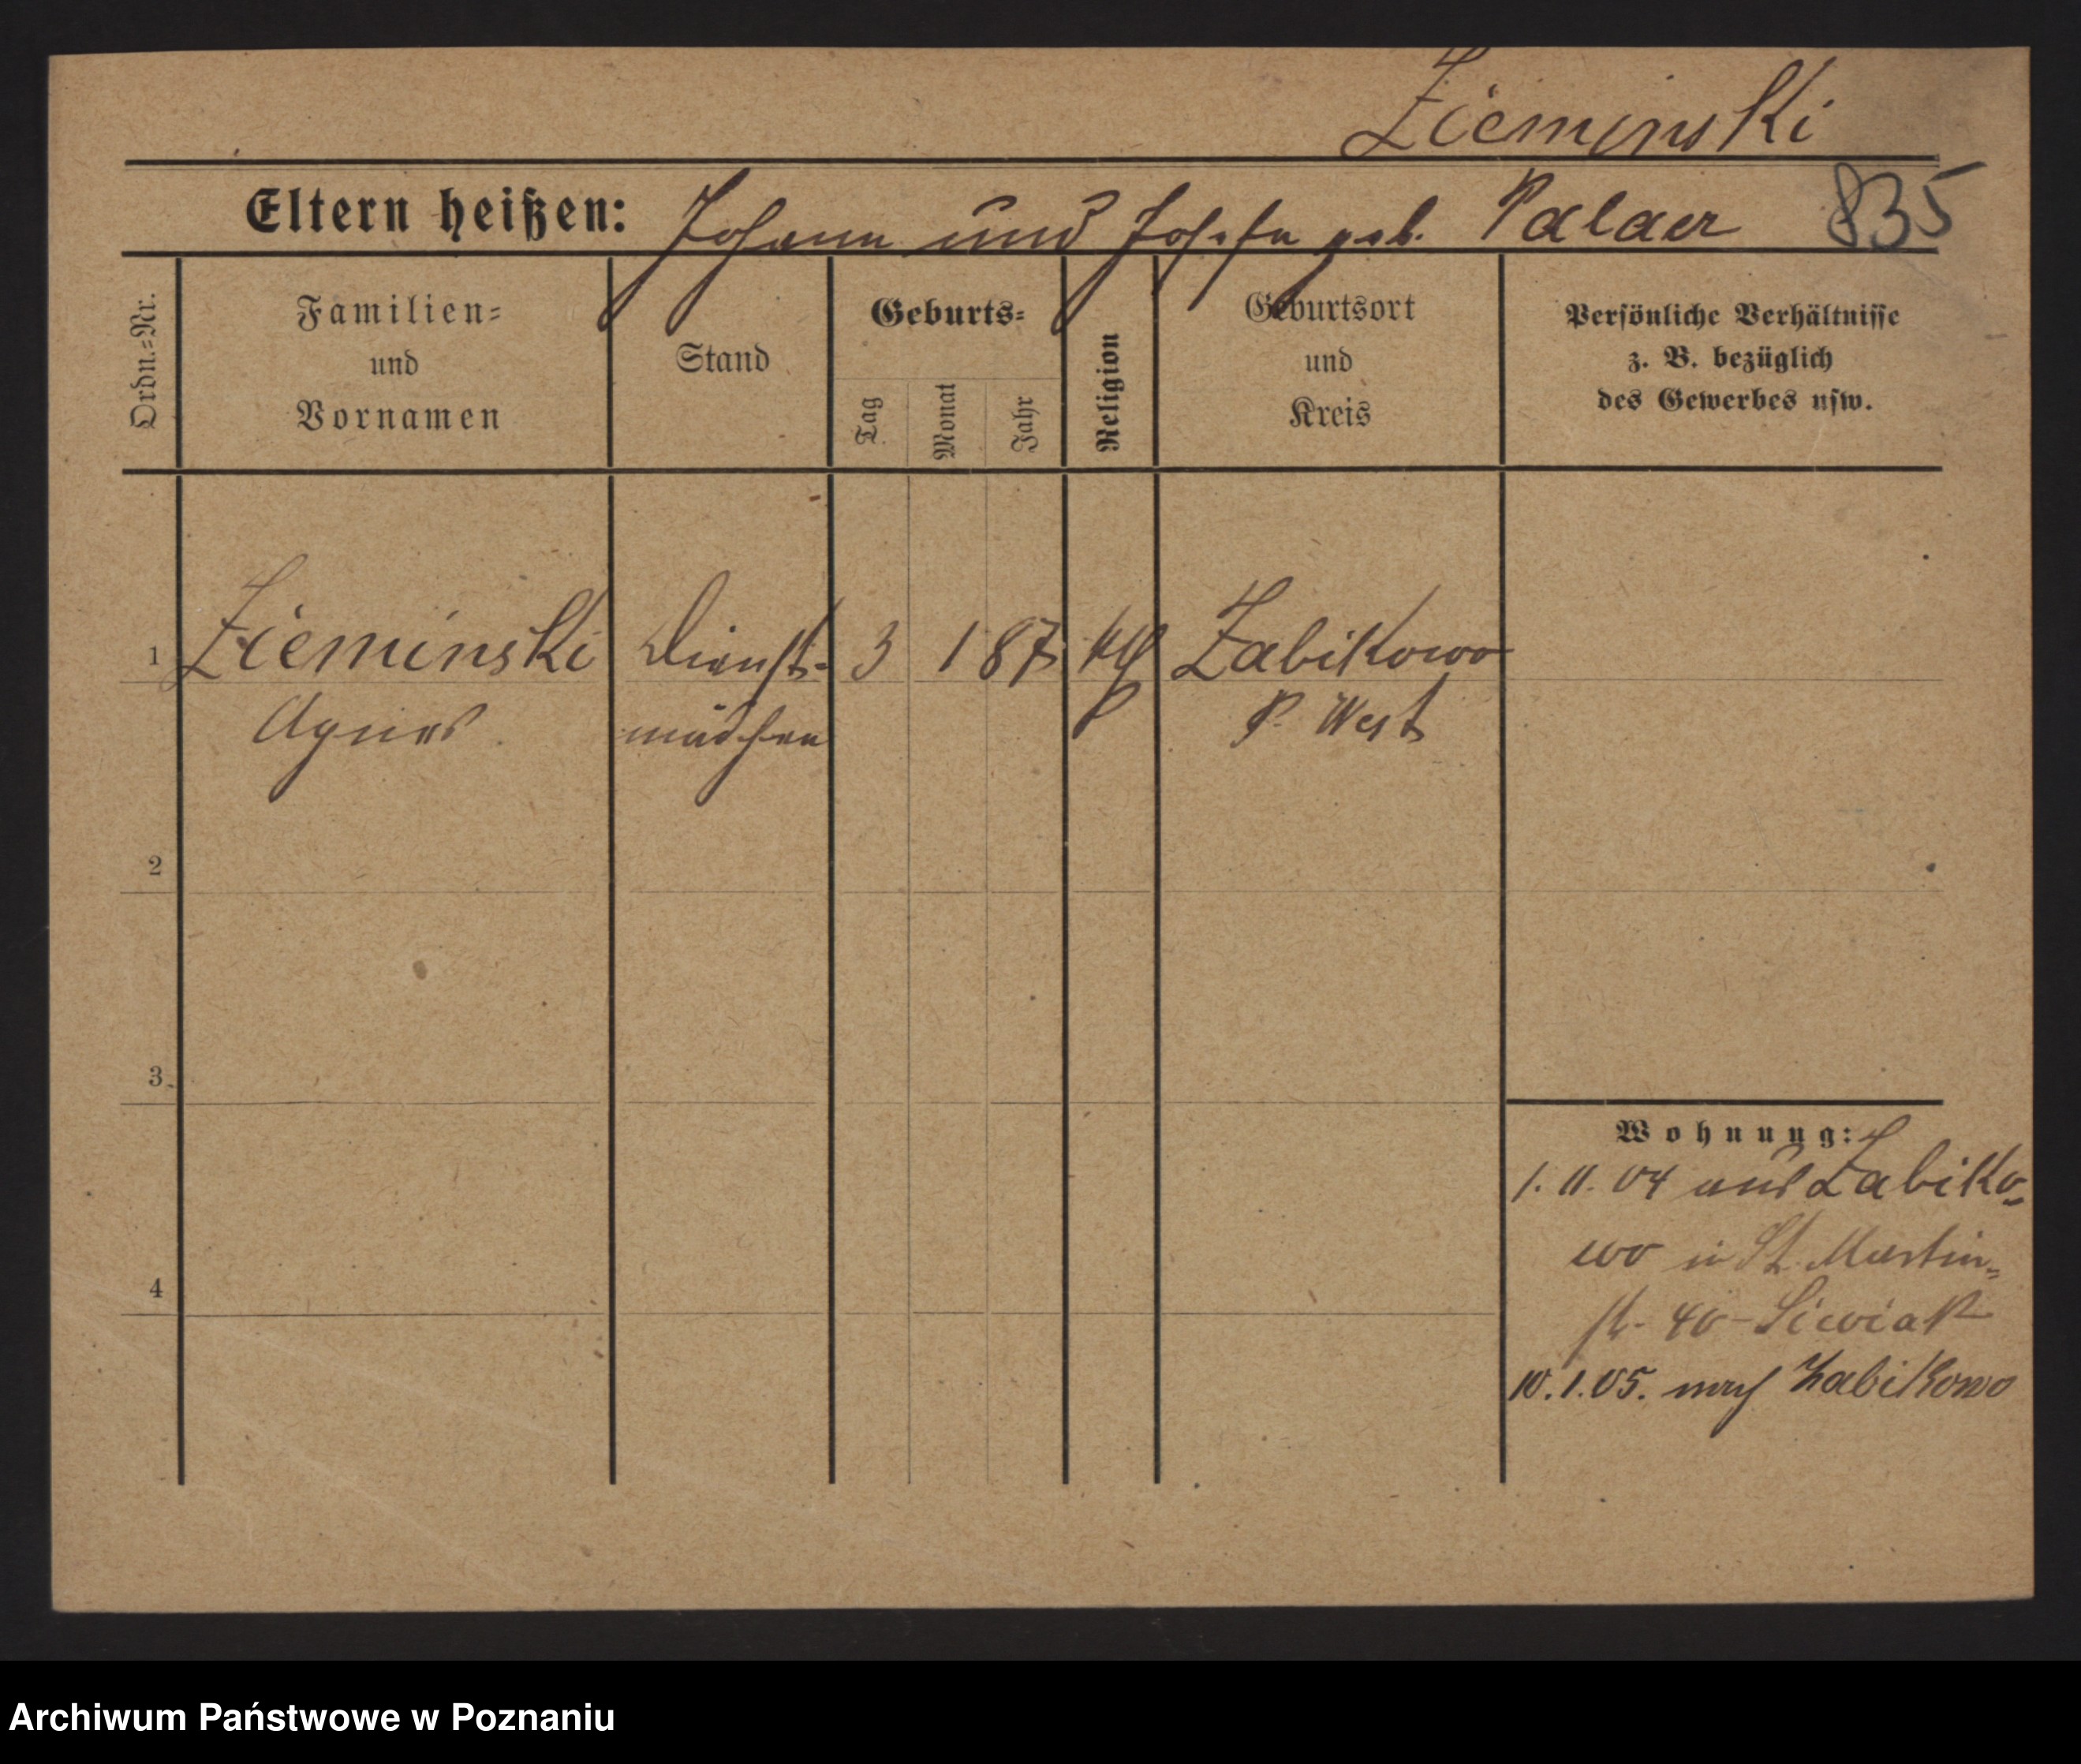 Zieminski
Eltern heißen: Johann und Josefa geb. Palacz 835
Ordn.=Nr.
Familien=
und
Vornamen
Stand
Geburts=
Tag
Monat
Jahr
Religion
Geburtsort
und
Kreis
Persönliche Verhältnisse
z. B. bezüglich
des Gewerbes usw.
1 Zieminski Dienst= 3 1 87 kth Zabikowo
Agnes mädchen P. West
2
3
4
Wohnung:
1. 11. 04 aus Zabiko=
wo in St. Martin=
str. 40 -
10. 1. 05. nach Zabikowo
Archiwum Państwowe w Poznaniu